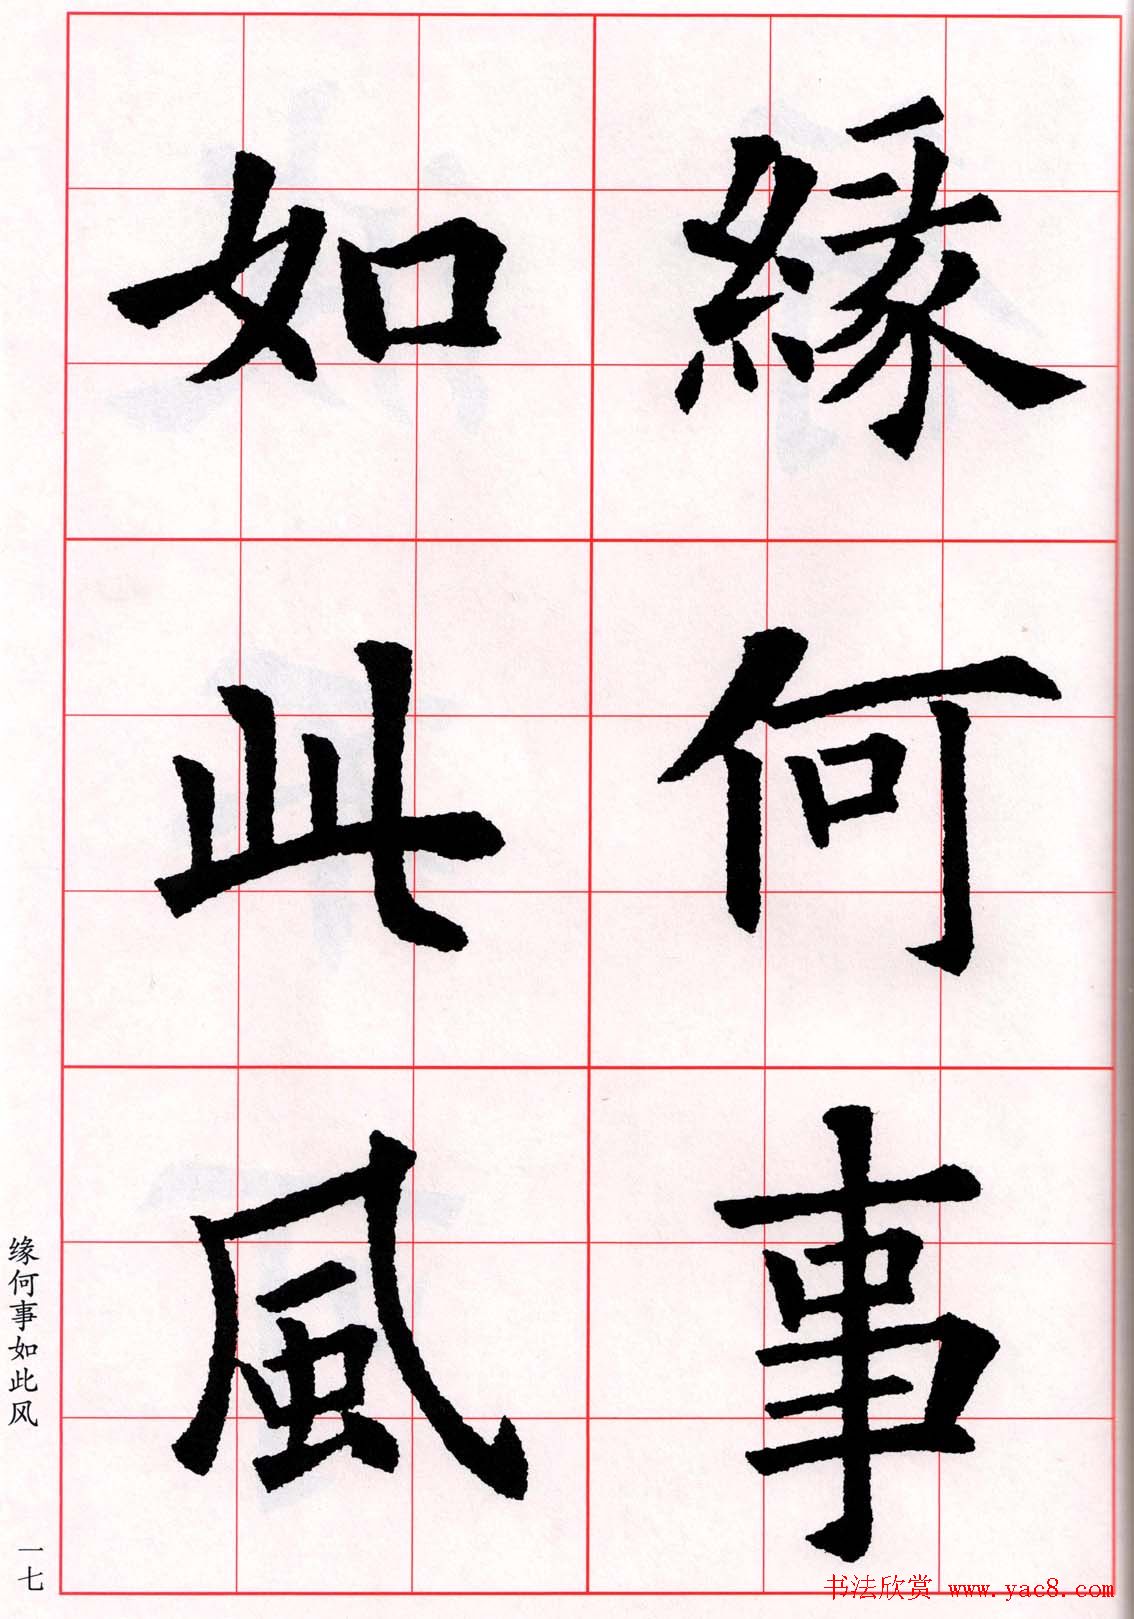 緣何事
如此風
缘何事如此风
一七
书法欣赏 www.yac8.com